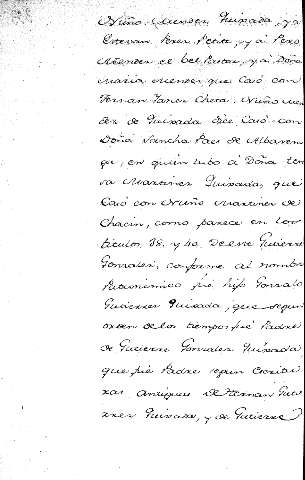 Nuño Mendez Quixada, y a
Estevan Perez Petite, y a Pero
Mendez el bel Pastor, y a Doña
Maria Mendez que Casó con
Fernan Janez Cheta. Nuño Men
dez de Quixada dize Casó con
Doña Sancha Paes de Albaren
ga, en quien tubo a Doña tere
sa Martinez Quixada, que
Casó con Nuño Martinez de
Chacin, como parece en los ti
tulos 38, y 40. De este Gutierre
Gonzalez, conforme al nombre
Patronimico fué hijo Gonzalo
Gutierrez Quixada, que segun
orden de los tiempos fué Padre
de Gutierre Gonzalez Quixada
que fué Padre segun Escritu
ras antiguas de Hernan Gutie
rrez Quixada, y de Gutierre